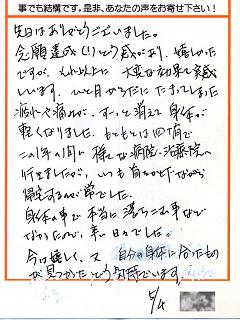 事でも結構です。是非、あなたの声をお寄せ下さい！
先日はありがとうございました。
念願達成(!)という感があり、嬉しかった
ですが、それ以上に 大変な効果を実感
しています。ひと月からだに たまってしまった
疲れや痛みが、すっと消えて 身体が
軽くなりました。もともとは四十肩で
この1年の間に 様々な病院、治療院へ
行きましたが、いつも首をかしげながら
帰宅するのが常でした。
身体の事で本当に 落ちこむ事など
なかったので、辛い日々でした。
今は嬉しく、又 自分の身体に合ったもの
が見つかったという気持でいます。
5/4